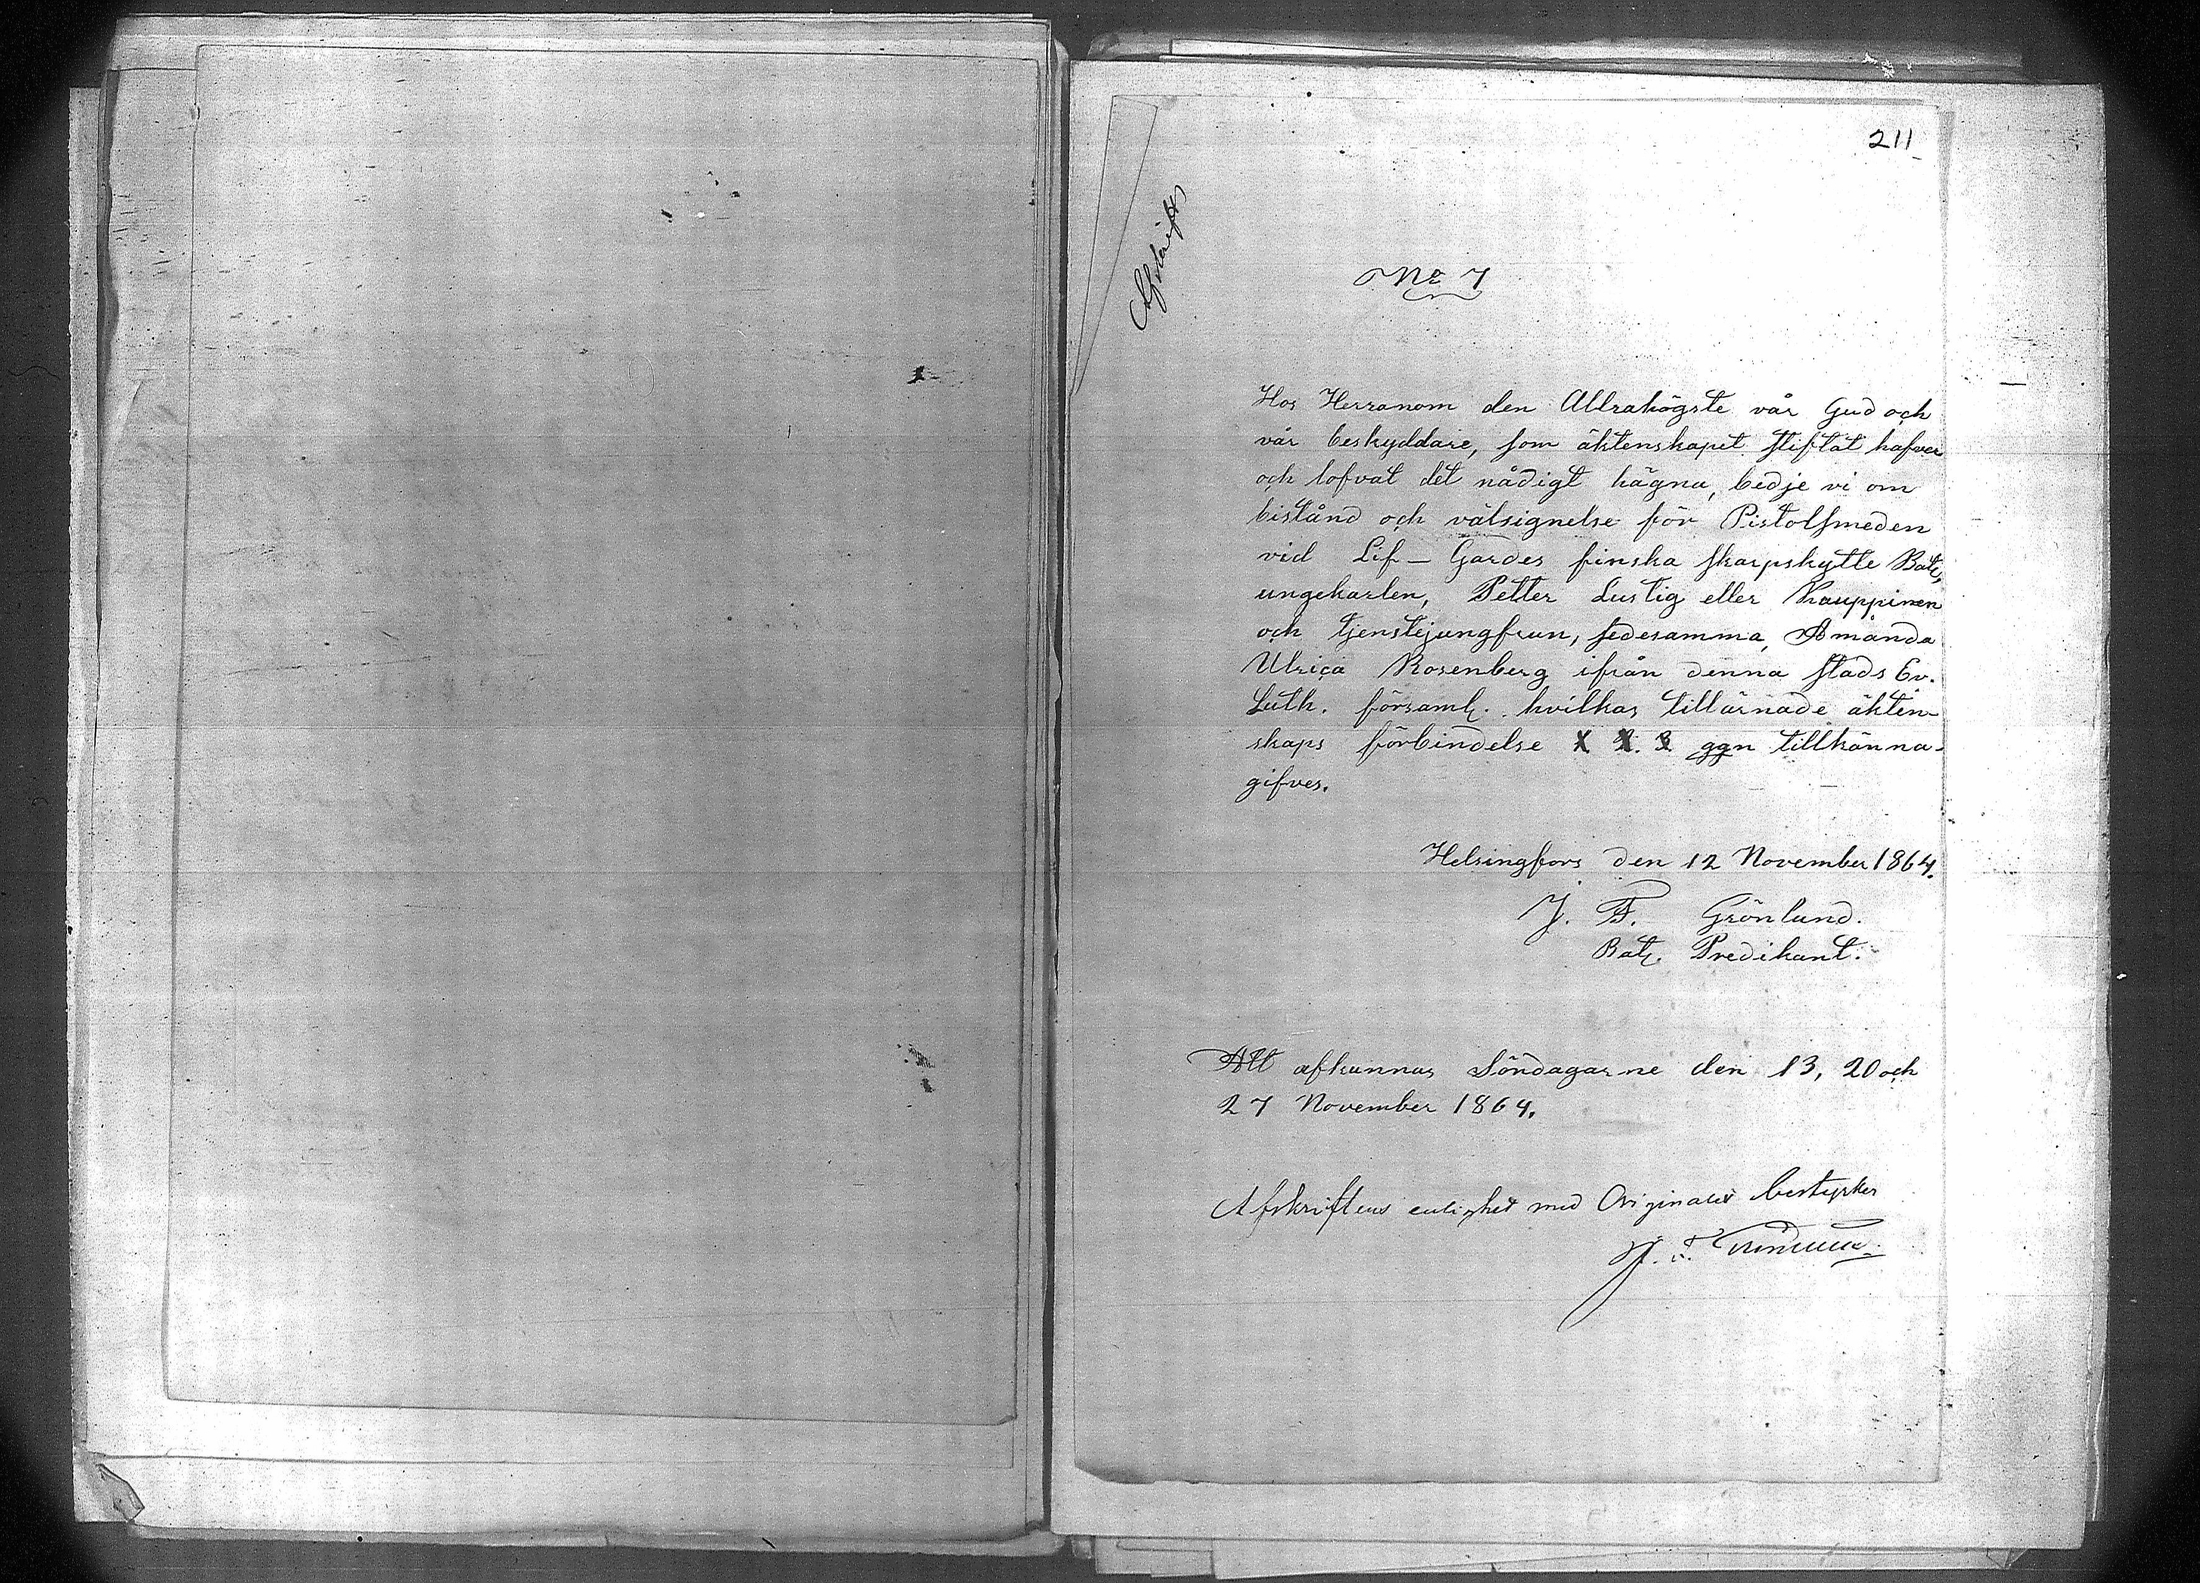 211
Afskrift
No 7
Hos Herranom den Allrahögste vår Gud och
vår beskyddare, som äktenskapet stiftat hafver
och lofvat det nådigt hägna, bedje vi om
bistånd och välsignelse för Pistolsmeden
vid Lif-Gardes finska skarpskytte Batlj,
ungekarlen, Petter Lustig eller Kauppinen
och tjenstejungfrun, sedesamma, Amanda
Ulrica Rosenberg ifrån denna stads Ev.
Luth. församl. hvilkas tillärnade äkten-
skaps förbindelse 1. 2. 3 ggn tillkänna-
gifves.
Helsingfors den 12 November 1864.
J. F. Grönlund.
Batlj. Predikant.
Att afkunnas Söndagarne den 13, 20 och
27 November 1864.
Afskriftens enlighet med Originalet bestyrker
J. F. Grönlund.